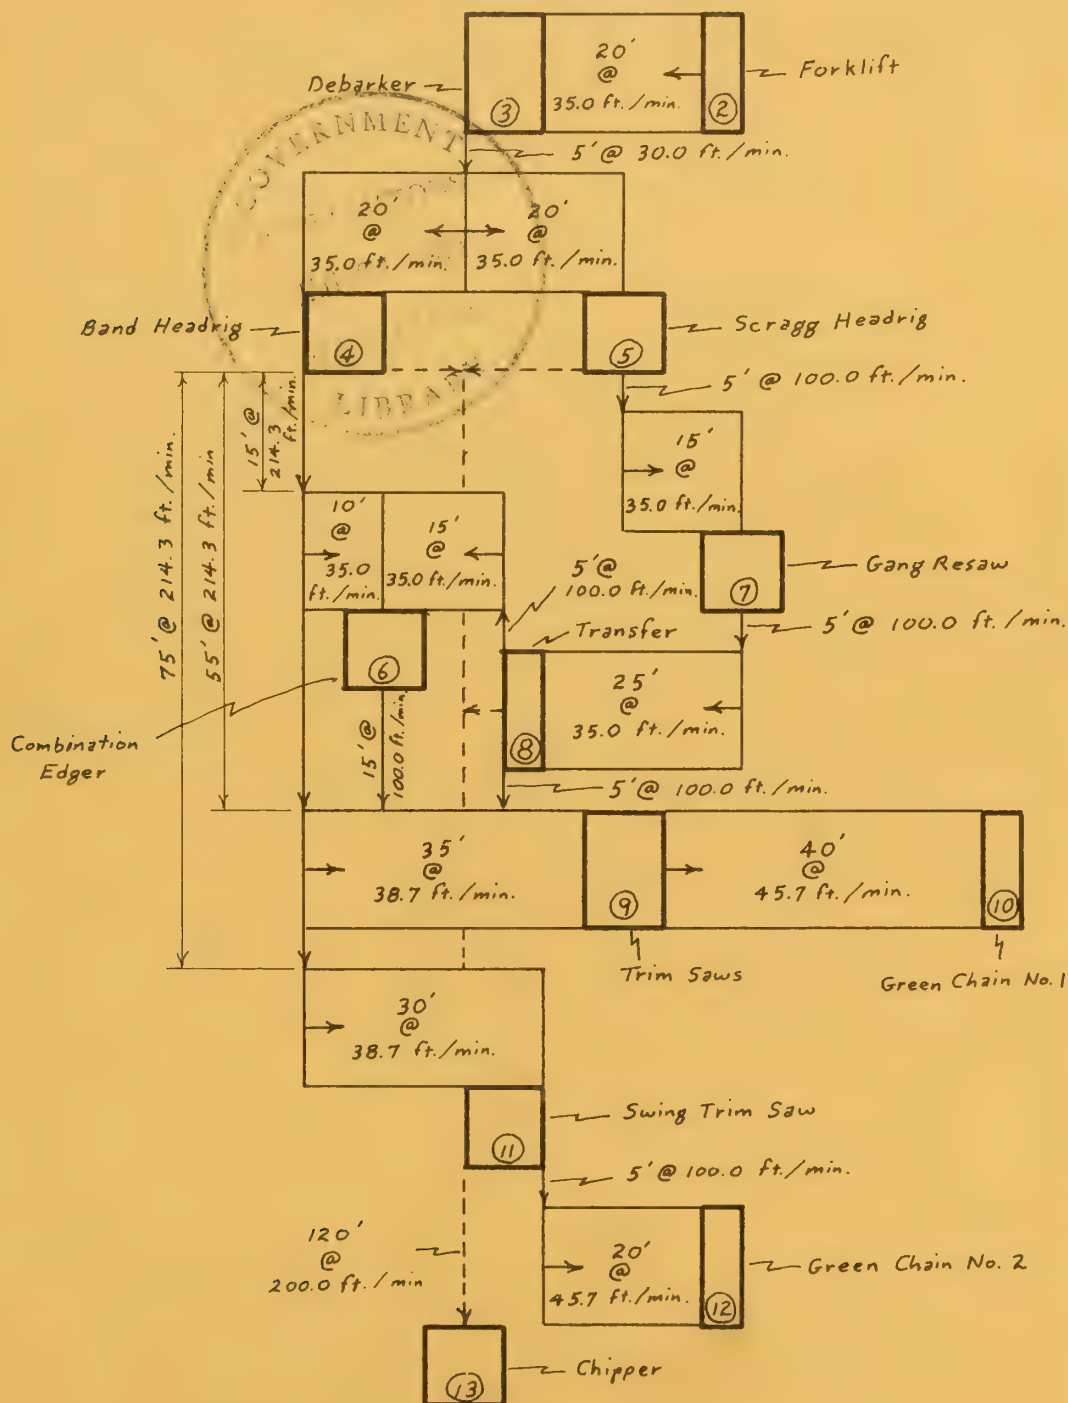 20'
@
35.0 ft./min.
Forklift
②
Debarker
③
5' @ 30.0 ft./min.
GOVERNMENT
LIBRARY
20'
@
35.0 ft./min.
20'
@
35.0 ft./min.
Band Headrig
④
Scragg Headrig
⑤
5' @ 100.0 ft./min.
15' @
214.3
ft./min.
55' @ 214.3 ft./min
75' @ 214.3 ft./min.
15'
@
35.0 ft./min.
10'
@
35.0
ft./min.
15'
@
35.0 ft./min.
5' @
100.0 ft./min.
Gang Resaw
⑦
5' @ 100.0 ft./min.
Transfer
⑥
25'
@
35.0 ft./min.
⑧
Combination
Edger
15' @
100.0 ft./min.
5' @ 100.0 ft./min.
35'
@
38.7 ft./min.
⑨
40'
@
45.7 ft./min.
⑩
Trim Saws
Green Chain No. 1
30'
@
38.7 ft./min.
Swing Trim Saw
⑪
5' @ 100.0 ft./min.
120'
@
200.0 ft./min
20'
@
45.7 ft./min.
Green Chain No. 2
⑫
Chipper
⑬